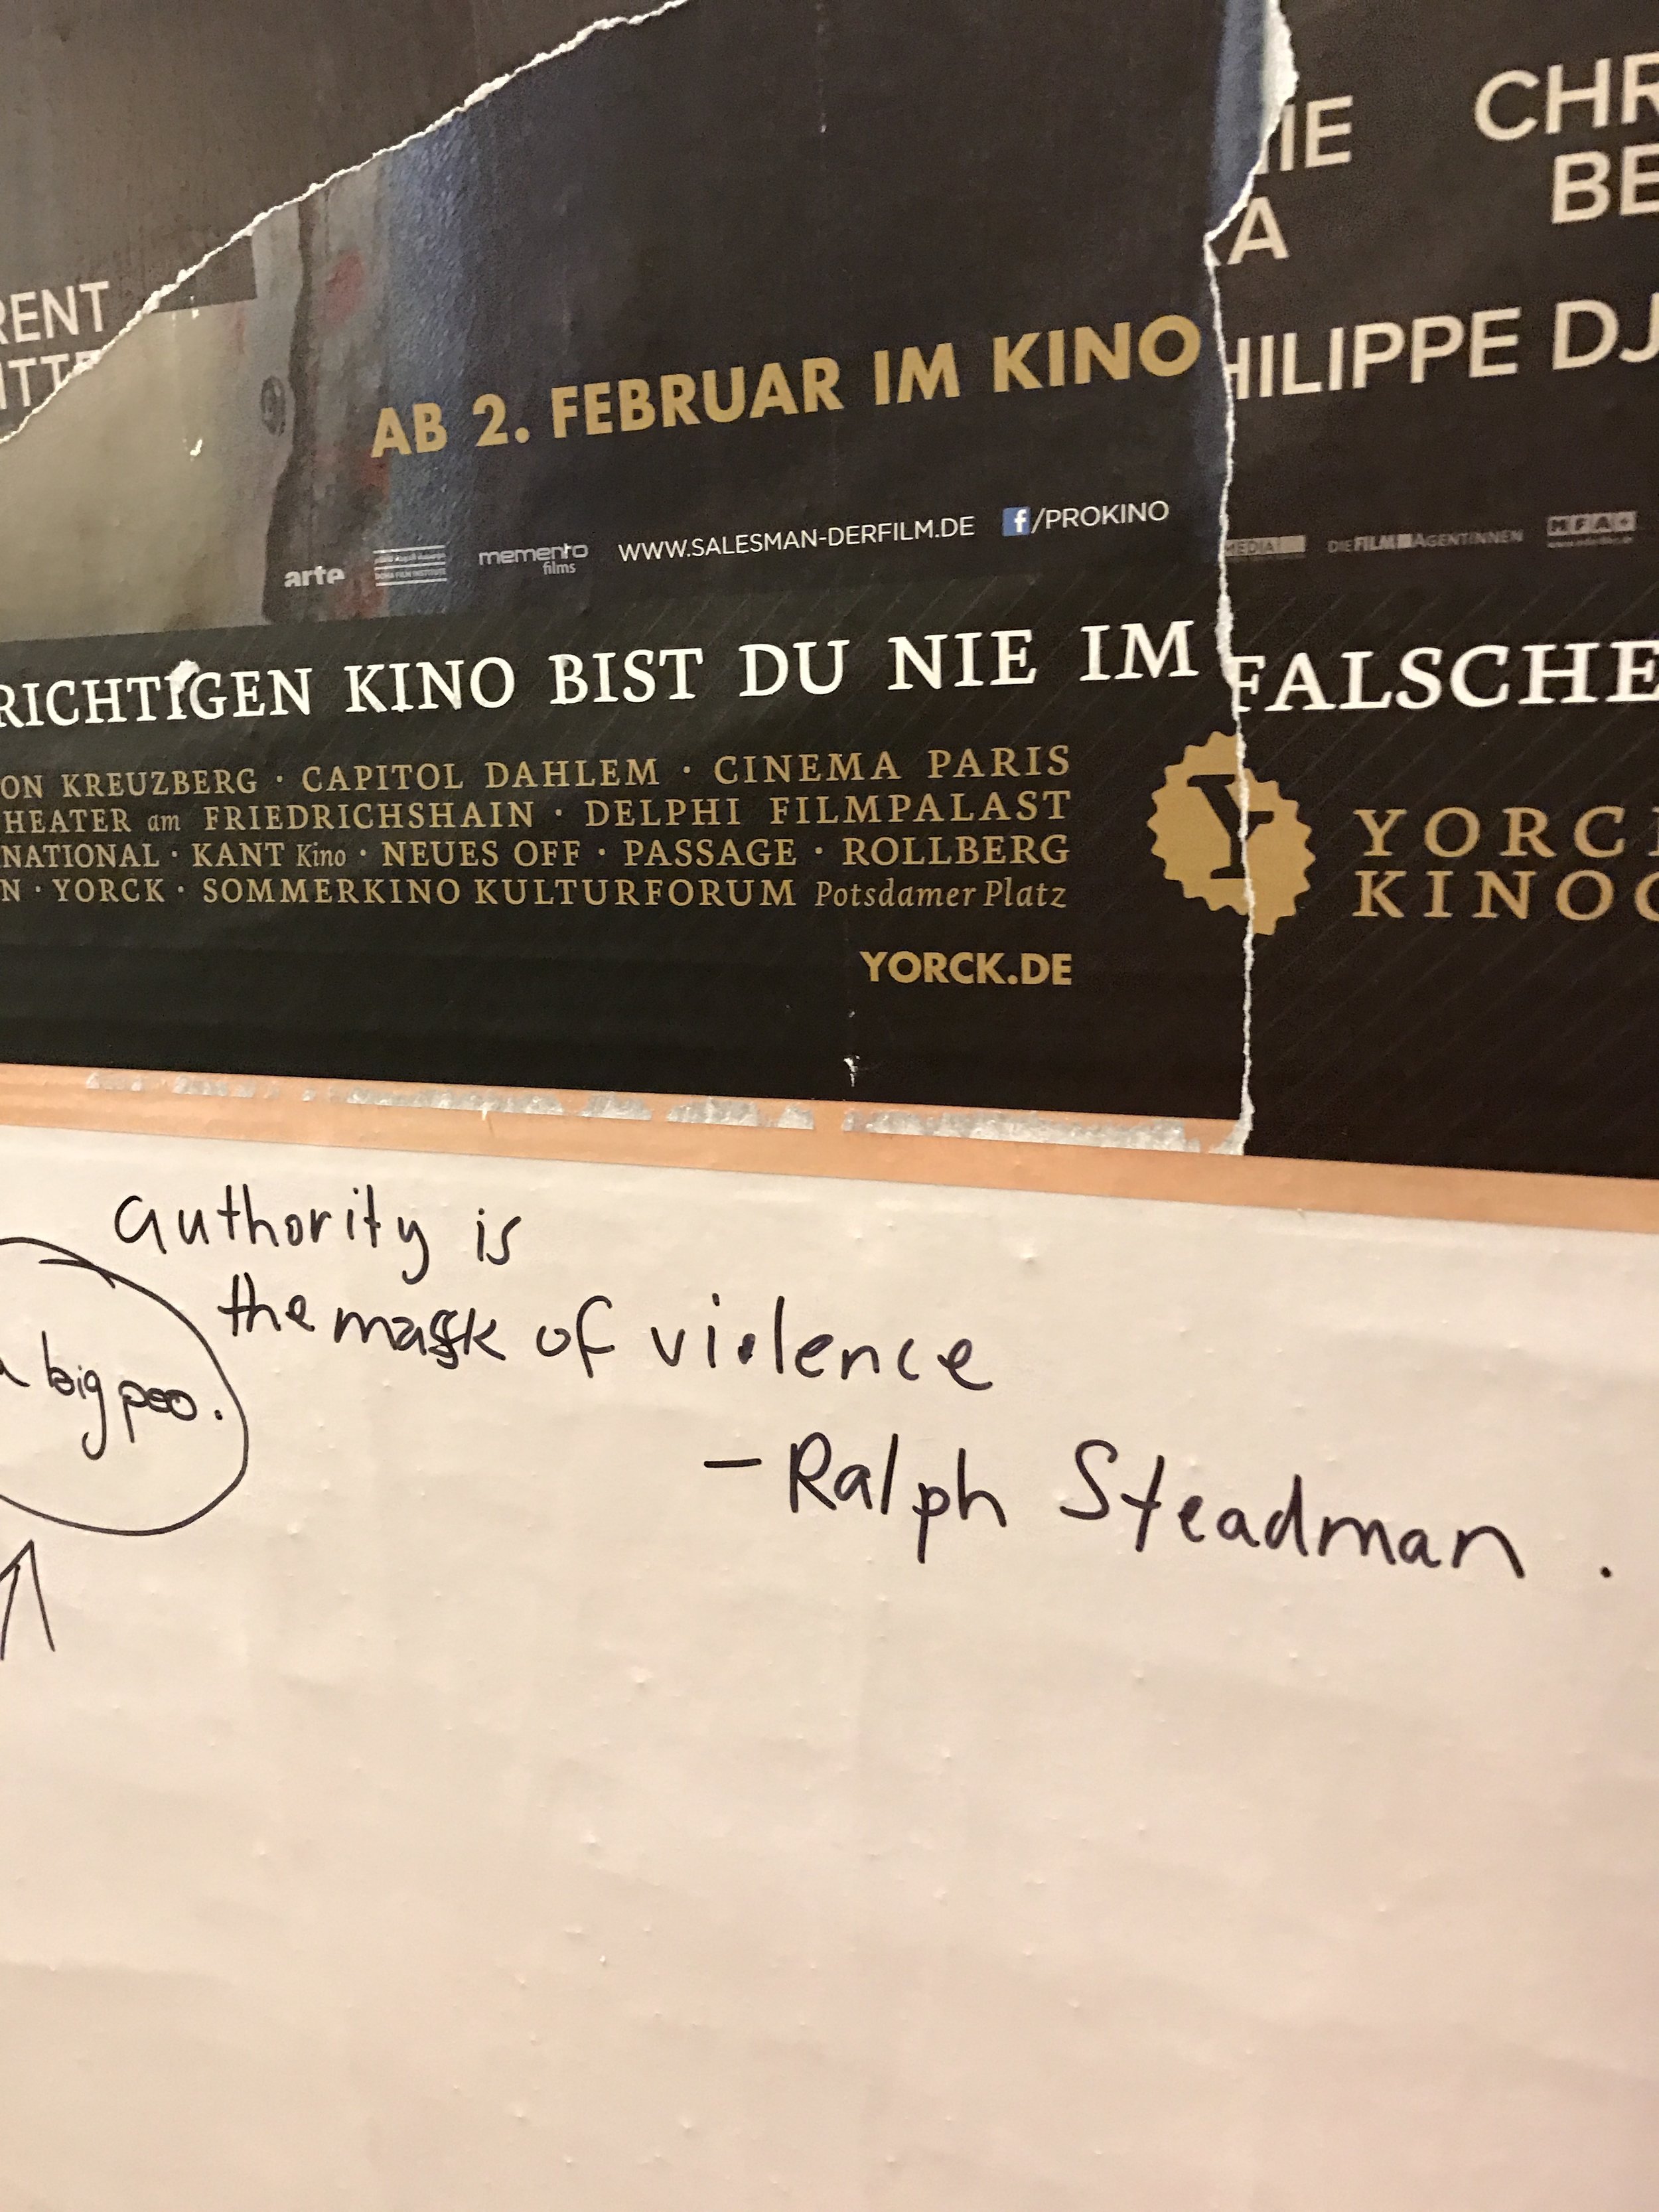 CHR
IE
BE
A
RENT
ITTE
HILIPPE DJ
AB 2. FEBRUAR IM KINO
arte
DOHA FILM INSTITUTE
memento
films
WWW.SALESMAN-DERFILM.DE
f/PROKINO
MEDIA
DIEFILMAGENTINNEN
MFA+
RICHTIGEN KINO BIST DU NIE IM FALSCHE
ON KREUZBERG · CAPITOL DAHLEM · CINEMA PARIS
HEATER am FRIEDRICHSHAIN · DELPHI FILMPALAST
NATIONAL · KANT Kino · NEUES OFF · PASSAGE · ROLLBERG
N · YORCK · SOMMERKINO KULTURFORUM Potsdamer Platz
YORCK.DE
Y
YORC
KINO
authority is
the mask of violence
- Ralph Steadman .
a big poo.